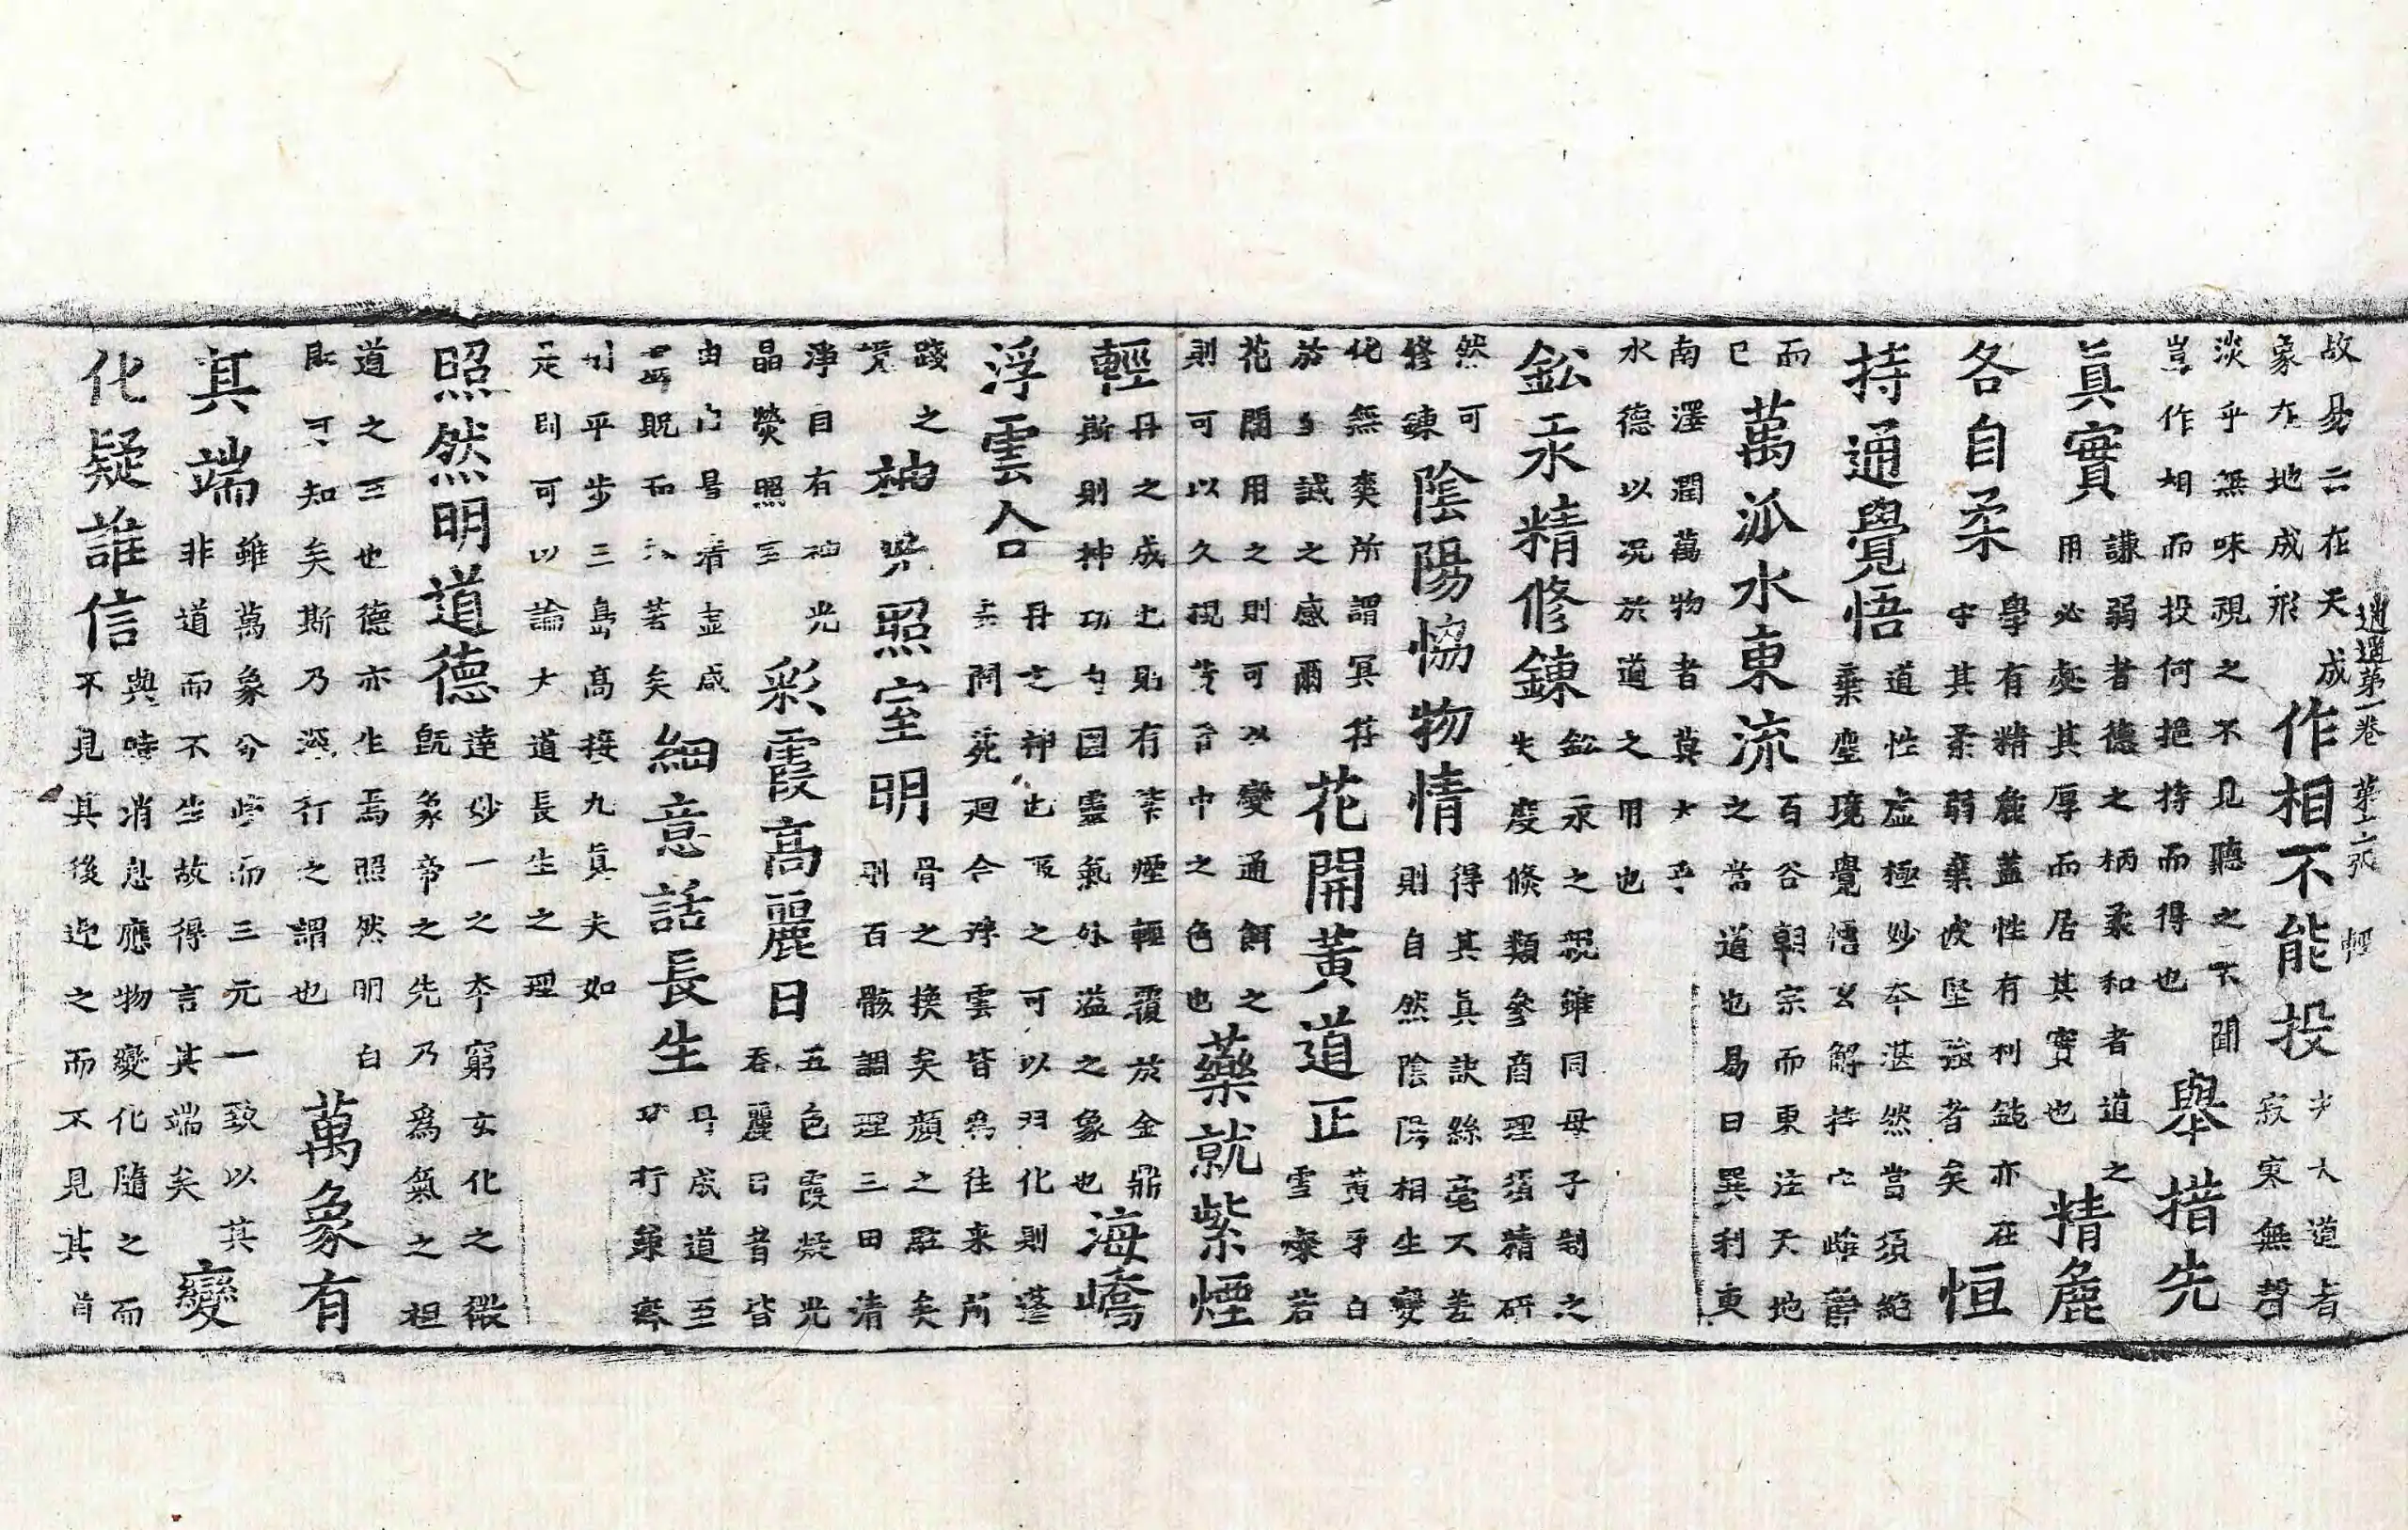 逍遥第一卷 第十二張 輕
故易云在天成
象在地成形
作相不能投
夫大道者
寂寞無
淡乎無味視之不見聽之不聞
豈作相而投何挹持而得也
舉措先
真實
謙弱者德之柄柔和者道之
用必處其厚而居其實也
精麁
各自柔
學有精麁蓋性有利鈍亦在
守其柔弱棄彼堅強者矣
恒
持通覺悟
道性虛極妙本湛然當須絕
棄塵境覺悟玄解持
而
已
萬派水東流
百谷朝宗而東注天地
之當道也易曰巽利東
南澤潤萬物者莫大乎
水德以況於道之用也
鈆汞精修鍊
鈆汞之親雖同母子制之
失度倐類參商理須精研
然可
修鍊
陰陽恊物情
得其真訣絲毫不差
則自然陰陽相生變
化無爽所謂冥符
於至誠之感爾
花開黃道正
黃牙白
雪寮若
花開用之則可以變通餌之
則可以久視中之色也
藥就紫煙
輕
丹之成也則有紫煙輕覆於金鼎
斯則神功因靈氣外溢之象也
海嶠
浮雲合
丹之神也服之可以羽化則蓬
苑迴合浮雲皆為往来所
踐之
神光照室明
骨之換矣顏之駐矣
則百骸調理三田清
淨目有神光
晶熒照室
彩霞高麗日
五色霞凝光
吞麗日昔皆
細意話長生
丹成道至
功行兼齊
則平步三島高接九真夫如
是則可以論大道長生之理
照然明道德
達妙一之本窮玄化之微
既象帝之先乃為氣之祖
道之至也德亦生焉照然明白
則可知矣斯乃深行之謂也
萬象有
其端
雖萬象兮些而三元一致以其
非道而不生故得言其端矣
變
化疑誰信
與時消息應物變化隨之而
不見其後迎之而不見其首